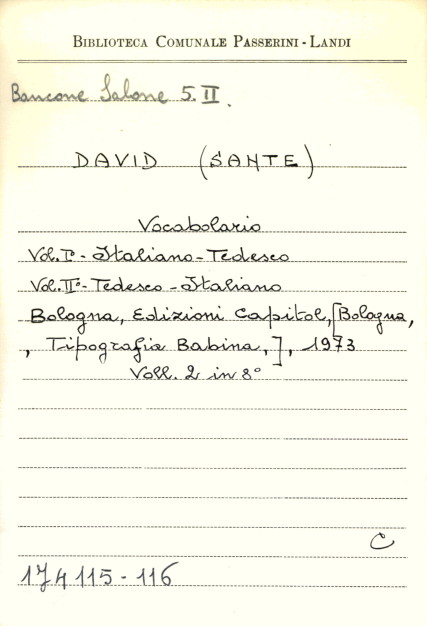 BIBLIOTECA COMUNALE PASSERINI - LANDI
Bancone Salone 5.II.
DAVID (SANTE)
Vocabolario
Vol. I° - Italiano - Tedesco
Vol. II° - Tedesco - Italiano
Bologna, Edizioni Capitol, [Bologna,
, Tipografia Babina,], 1973
Voll. 2 in 8°
C
174115 - 116